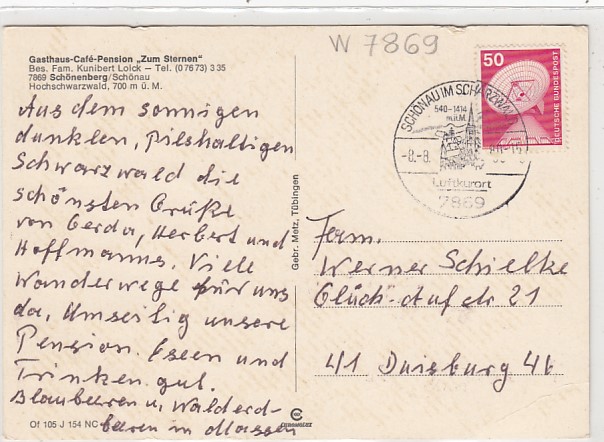 W 7869
Gasthaus-Café-Pension „Zum Sternen"
Bes. Fam. Kunibert Loick — Tel. (0 76 73) 3 35
7869 Schönenberg/Schönau
Hochschwarzwald, 700 m ü. M.
Aus dem sonnigen
dunklen, Pilshaltigen
Schwarzwald die
schönsten Grüße
von Gerda, Herbert und
Hoffmanns. Viele
Wanderwege für uns
da, Umseitig unsere
Pension. Essen und
Trinken gut.
Blaubeeren u. Walderd-
beeren in Massen
Of 105 J 154 NC
Gebr. Metz, Tübingen
50
DEUTSCHE BUNDESPOST
SCHÖNAU IM SCHWARZWALD
540-1414
m.ü.M.
-8.-8.
Luftkurort
7869
Fam.
Werner Schielke
Glück-Auf str 21
41 Duisburg 46